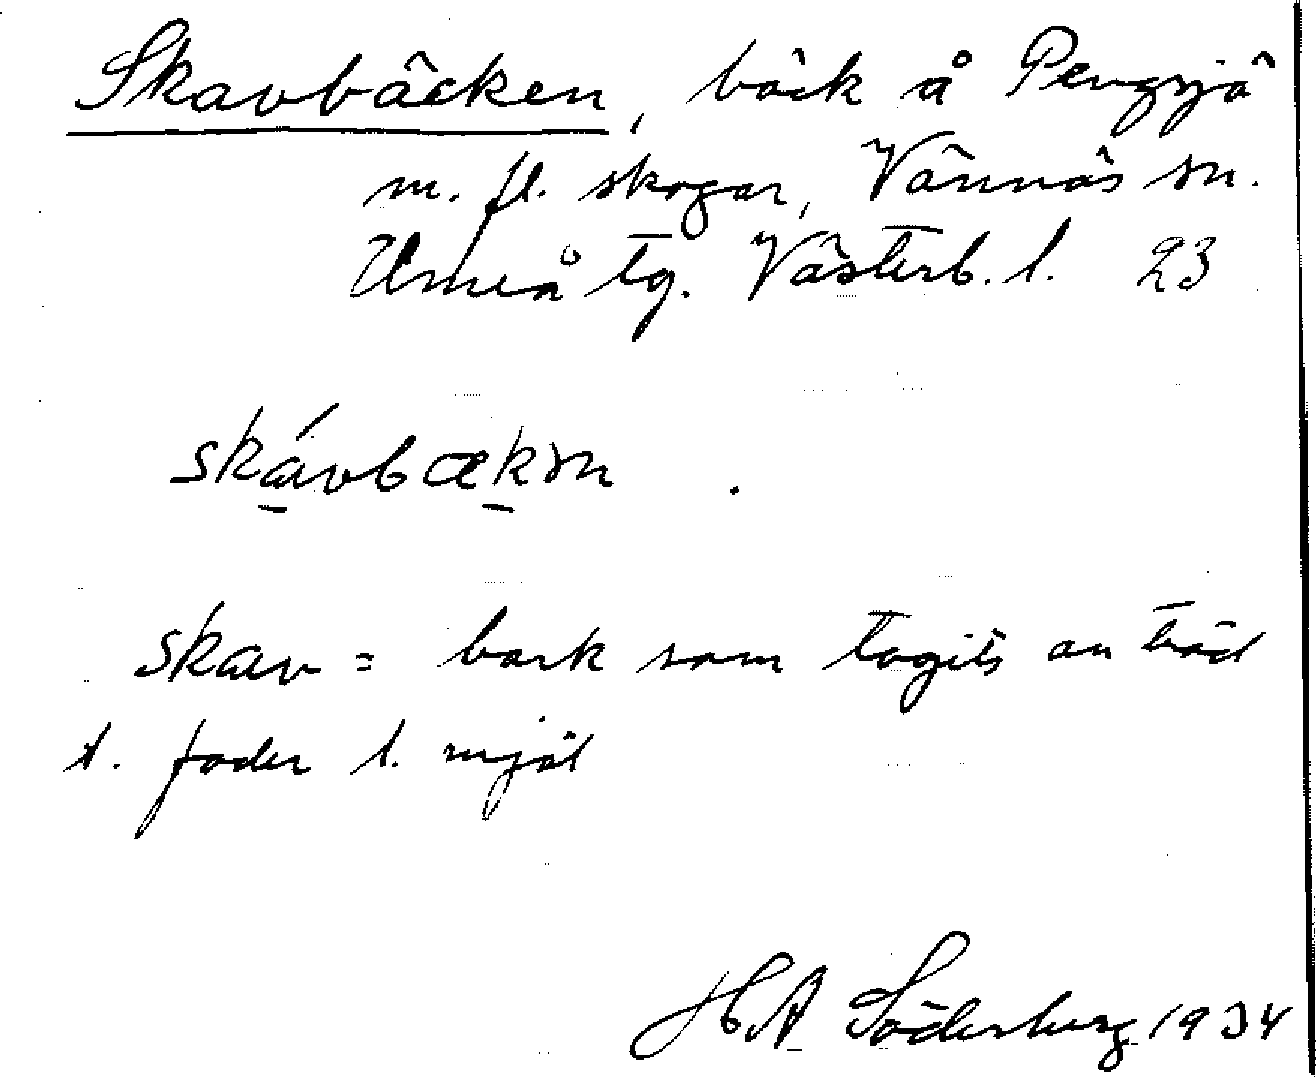 Skavbäcken, bäck å Pengsjö
m. fl. skogar, Vännäs sn.
Umeå tg. Västerb. l. 23
skávbækən .
skav = bark som tagits av träd
t. foder l. mjöl
HA Söderberg 1934